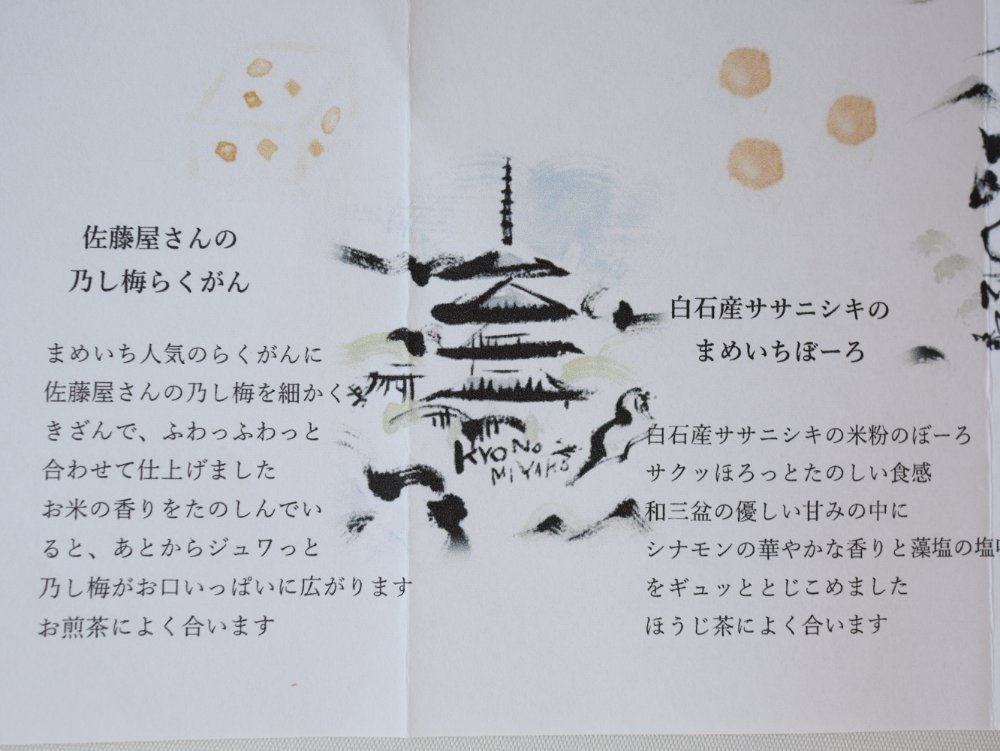 佐藤屋さんの
乃し梅らくがん
まめいち人気のらくがんに
佐藤屋さんの乃し梅を細かく
きざんで、ふわっふわっと
合わせて仕上げました
お米の香りをたのしんでい
ると、あとからジュワっと
乃し梅がお口いっぱいに広がります
お煎茶によく合います
KYONO
MIYAKO
白石産ササニシキの
まめいちぼーろ
白石産ササニシキの米粉のぼーろ
サクッほろっとたのしい食感
和三盆の優しい甘みの中に
シナモンの華やかな香りと藻塩の塩
をギュッととじこめました
ほうじ茶によく合います